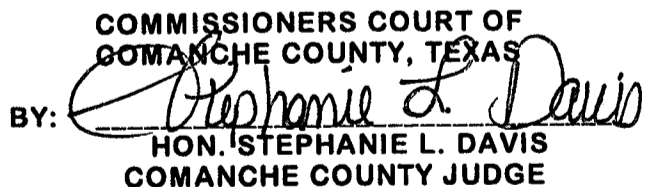 COMMISSIONERS COURT OF
COMANCHE COUNTY, TEXAS
BY: Stephanie L. Davis
HON. STEPHANIE L. DAVIS
COMANCHE COUNTY JUDGE